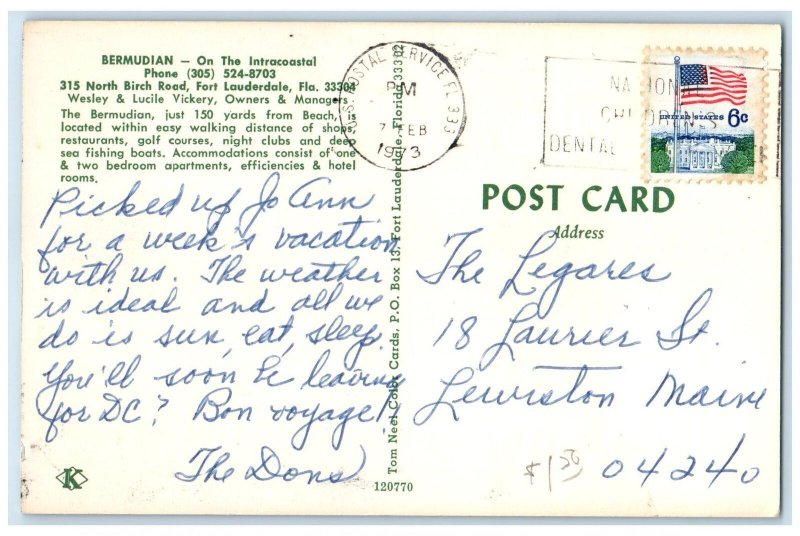 BERMUDIAN — On The Intracoastal
Phone (305) 524-8703
315 North Birch Road, Fort Lauderdale, Fla. 33304
Wesley & Lucile Vickery, Owners & Managers
The Bermudian, just 150 yards from Beach, is
located within easy walking distance of shops,
restaurants, golf courses, night clubs and deep
sea fishing boats. Accommodations consist of one
& two bedroom apartments, efficiencies & hotel
rooms.
Picked up Jo Ann
for a week's vacation
with us. The weather
is ideal and all we
do is sun, eat, sleep.
You'll soon be leaving
for DC? Bon voyage!
The Dons
K
Tom Neel Color Cards, P.O. Box 137, Fort Lauderdale, Florida 33302
120770
U.S. POSTAL SERVICE FL 333
PM
7 FEB
1973
NATIONAL
CHILDREN'S
DENTAL
UNITED STATES 6c
POST CARD
Address
The Legares
18 Laurier St.
Lewiston Maine
04240
$1.50